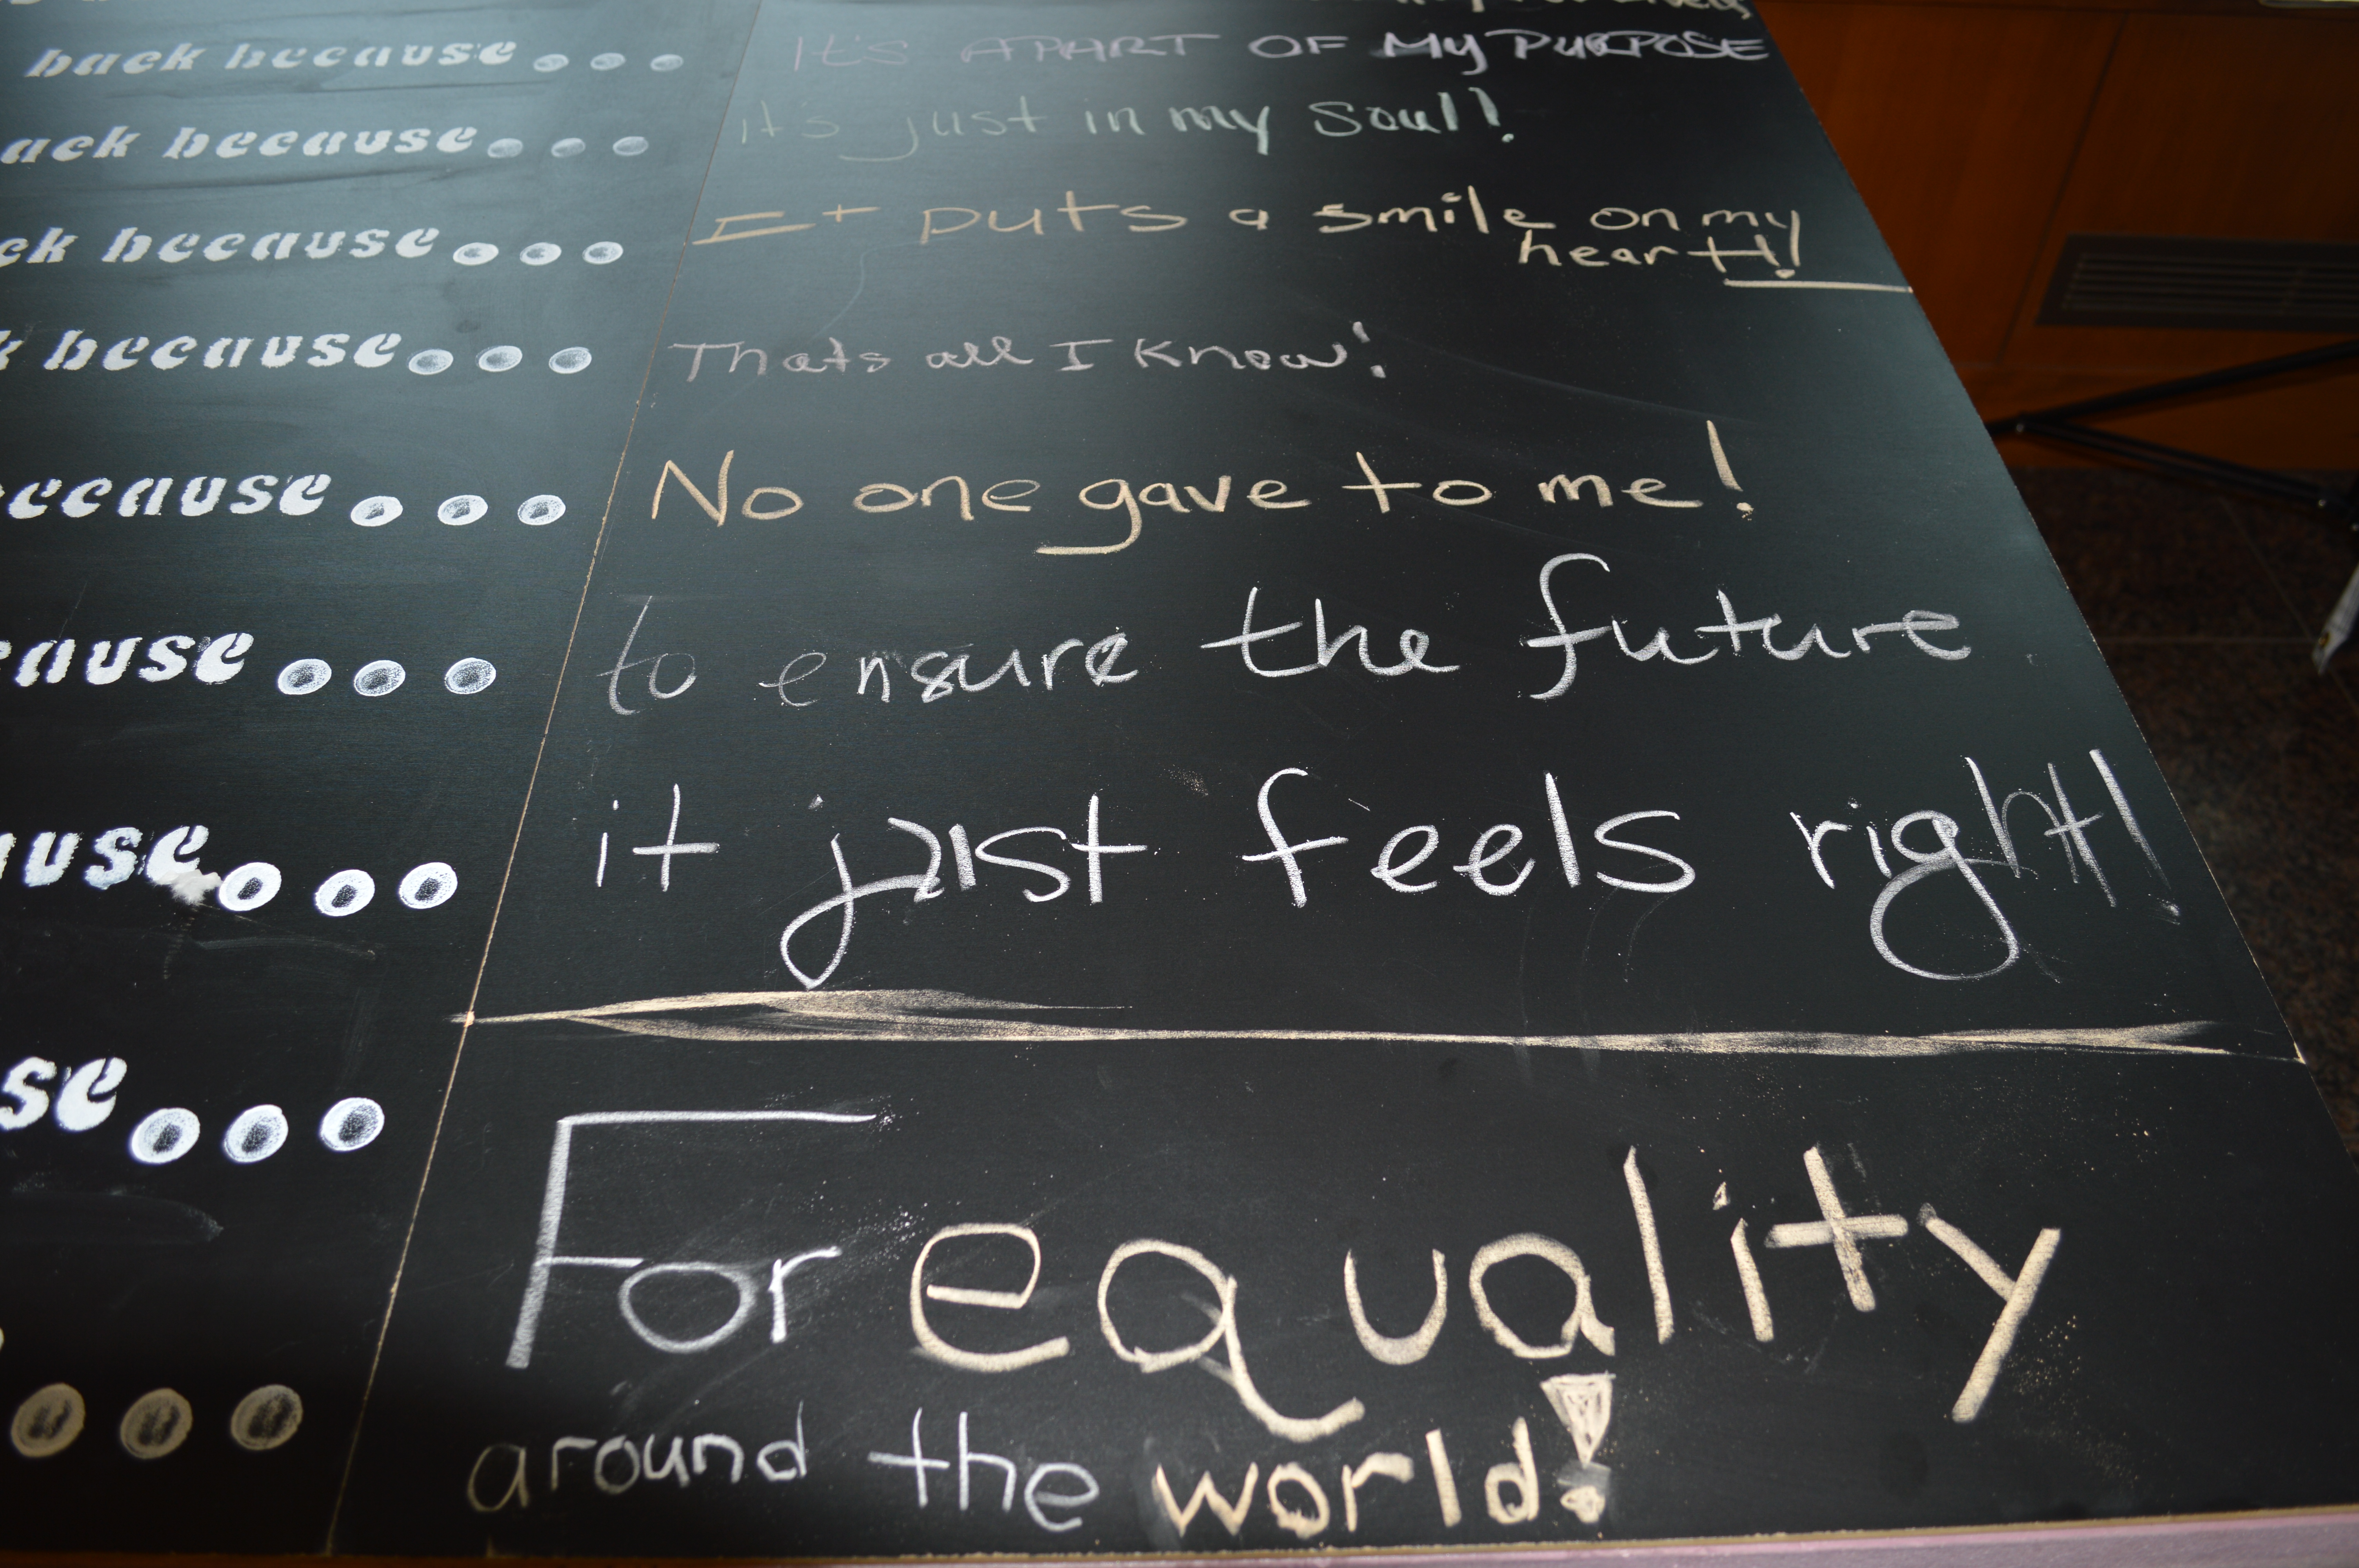 back because... It's APART OF My PURPOSE
ack because... it's just in my soul!
ck because... It puts a smile on my
heart!!
k because... Thats all I know!
ecause... No one gave to me!
cause... to ensure the future
use... it just feels right!
se... For equality
around the world!
...